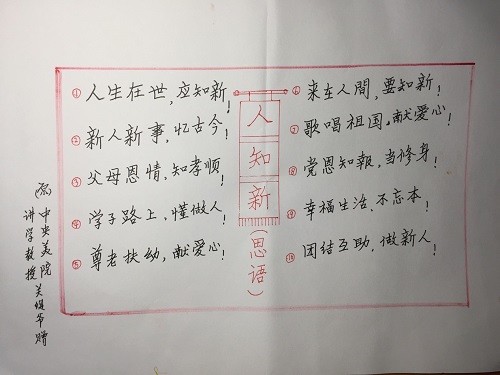 ①人生在世,应知新!
②新人新事,忆古今!
③父母恩情,知孝顺!
④学子路上,懂做人!
⑤尊老扶幼,献爱心!
人知新(思语)
⑥来在人間,要知新!
⑦歌唱祖国,献爱心!
⑧党恩知報,当修身!
⑨幸福生活,不忘本!
⑩团结互助,做新人!
中央美院
讲学教授 关 赠